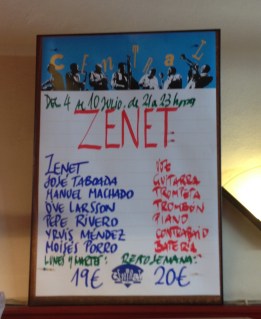 CENTRAL
DEL 4 AL 10 JULIO. DE 21 A 23 horas
ZENET
ZENET VOZ
JOSÉ TABOADA GUITARRA
MANUEL MACHADO TROMPETA
OVE LARSSON TROMBÓN
PEPE RIVERO PIANO
YRVIS MÉNDEZ CONTRABAJO
MOISÉS PORRO BATERÍA
LUNES Y MARTES: RESTO SEMANA:
19€ 20€